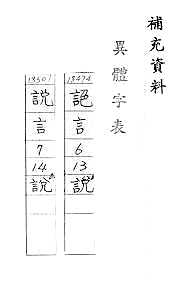 補充資料
異體字表
13474
言
6
13
說
13501
説
言
7
14
說